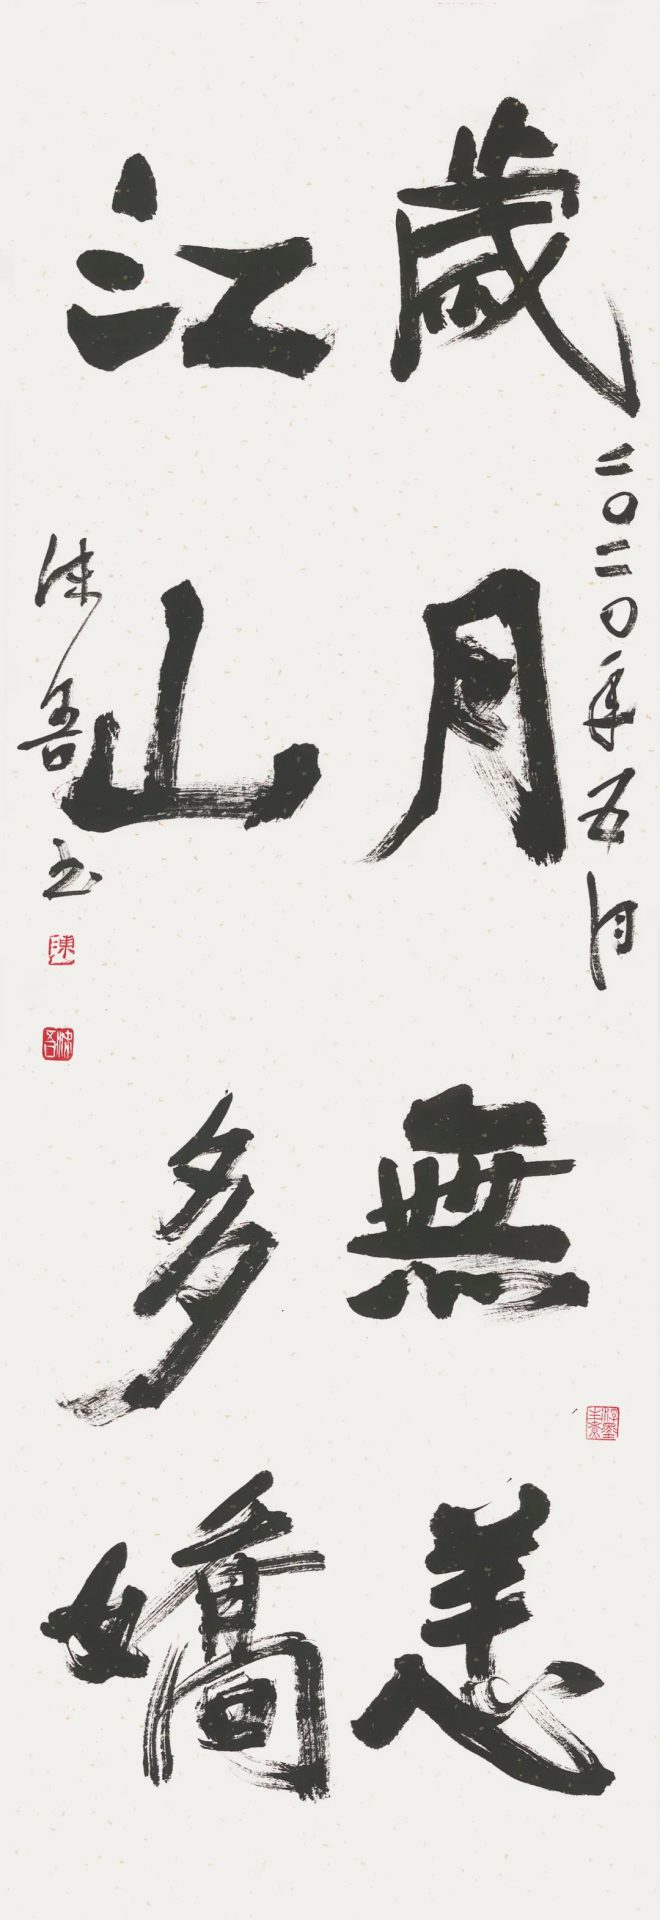 二〇二〇年五月
歲月無恙
江山多嬌
吾书
陳